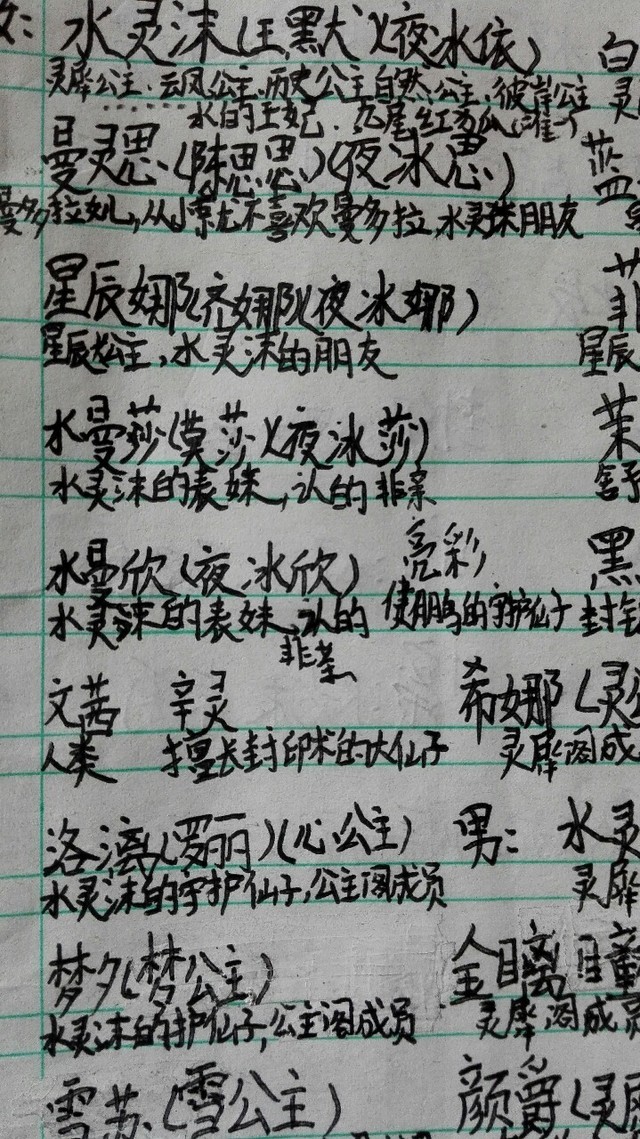 女: 水灵沫(王默)(夜冰依) 白
灵犀公主、云风公主、历史公主、自然公主、彼岸公主 灵
水的王妃、九尾红
曼灵思(陈思思)(夜冰思) 蓝
曼多拉女儿,从小就不喜欢曼多拉,水灵沫朋友
星辰娜(齐娜)(夜冰娜)
星辰公主,水灵沫的朋友 星辰
水曼莎(莫莎)(夜冰莎) 茉
水灵沫的表妹,认的非亲 舒
水曼欣(夜冰欣) 亮彩 黑
水灵沫的表妹、认的 使鹏的守护仙子 封
非亲
文茜 辛灵 希娜(灵
人类 擅长封印术的大仙子 灵犀阁成
洛漓(罗丽)(心公主) 男: 水灵
水灵沫的守护仙子,公主阁成员 灵犀
梦夕(梦公主) 金离瞳
水灵沫的护仙子,公主阁成员 灵犀阁成员
雪苏(雪公主) 颜爵(灵犀